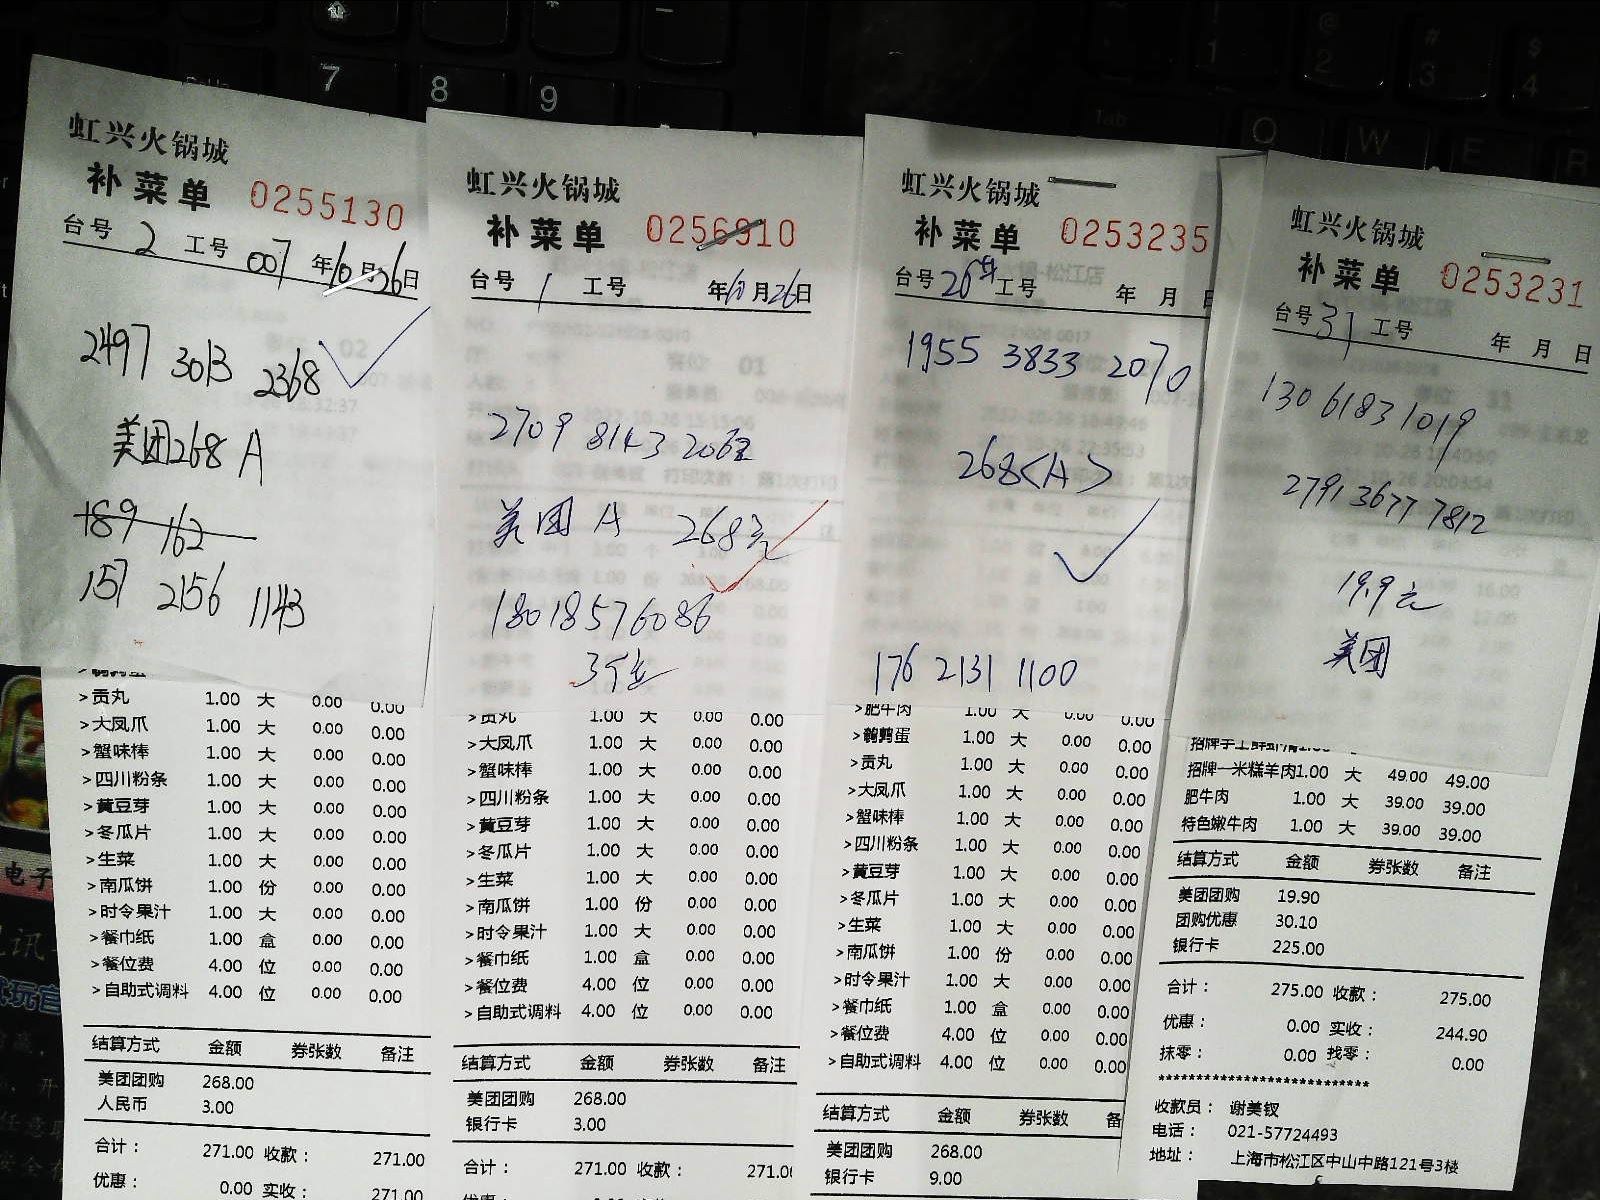 7
8
9
虹兴火锅城
补菜单 0255130
台号 2 工号 007 年10月26日
2497 3013 2368
美团268 A
189 162
157 2156 1143
>贡丸 1.00 大 0.00 0.00
>大凤爪 1.00 大 0.00 0.00
>蟹味棒 1.00 大 0.00 0.00
>四川粉条 1.00 大 0.00 0.00
>黄豆芽 1.00 大 0.00 0.00
>冬瓜片 1.00 大 0.00 0.00
>生菜 1.00 大 0.00 0.00
>南瓜饼 1.00 份 0.00 0.00
>时令果汁 1.00 大 0.00 0.00
>餐巾纸 1.00 盒 0.00 0.00
>餐位费 4.00 位 0.00 0.00
>自助式调料 4.00 位 0.00 0.00
结算方式 金额 券张数 备注
美团团购 268.00
人民币 3.00
合计： 271.00 收款： 271.00
优惠： 0.00 实收： 271.00
虹兴火锅城
补菜单 0256910
台号 1 工号 年10月26日
2709 8143 206
美团 A 268元
18018576086
3个位
>贡丸 1.00 大 0.00 0.00
>大凤爪 1.00 大 0.00 0.00
>蟹味棒 1.00 大 0.00 0.00
>四川粉条 1.00 大 0.00 0.00
>黄豆芽 1.00 大 0.00 0.00
>冬瓜片 1.00 大 0.00 0.00
>生菜 1.00 大 0.00 0.00
>南瓜饼 1.00 份 0.00 0.00
>时令果汁 1.00 大 0.00 0.00
>餐巾纸 1.00 盒 0.00 0.00
>餐位费 4.00 位 0.00 0.00
>自助式调料 4.00 位 0.00 0.00
结算方式 金额 券张数 备注
美团团购 268.00
银行卡 3.00
合计： 271.00 收款： 271.0
虹兴火锅城
补菜单 0253235
台号 26 工号 年 月 日
1955 3833 2070
268<A>
176 2131 1100
>肥牛肉 1.00 大 0.00 0.00
>鹌鹑蛋 1.00 大 0.00 0.00
>贡丸 1.00 大 0.00 0.00
>大凤爪 1.00 大 0.00 0.00
>蟹味棒 1.00 大 0.00 0.00
>四川粉条 1.00 大 0.00 0.00
>黄豆芽 1.00 大 0.00 0.00
>冬瓜片 1.00 大 0.00 0.00
>生菜 1.00 大 0.00 0.00
>南瓜饼 1.00 份 0.00 0.00
>时令果汁 1.00 大 0.00 0.00
>餐巾纸 1.00 盒 0.00 0.00
>餐位费 4.00 位 0.00 0.00
>自助式调料 4.00 位 0.00 0.00
结算方式 金额 券张数 备
美团团购 268.00
银行卡 9.00
虹兴火锅城
补菜单 0253231
台号 31 工号 年 月 日
130 6183 1019
2791 3677 7812
19.9元
美团
招牌一米糕羊肉1.00 大 49.00 49.00
肥牛肉 1.00 大 39.00 39.00
特色嫩牛肉 1.00 大 39.00 39.00
结算方式 金额 券张数 备注
美团团购 19.90
团购优惠 30.10
银行卡 225.00
合计： 275.00 收款： 275.00
优惠： 0.00 实收： 244.90
抹零： 0.00 找零： 0.00
****************************
收款员： 谢美钗
电话： 021-57724493
地址： 上海市松江区中山中路121号3楼